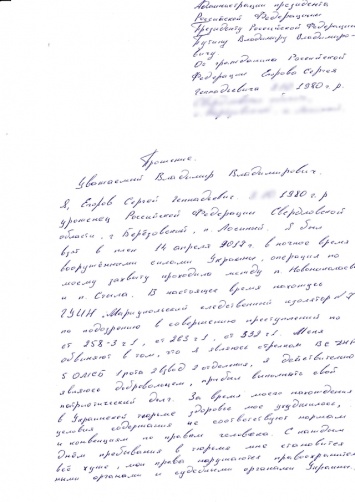 Администрации президента
Российской Федерации
Президенту Российской Федерации
Путину Владимиру Владимиро-
вичу
От гражданина Российской
Федерации Егорова Сергея
Геннадьевича 1980 г.р.
Прошение.
Уважаемый Владимир Владимирович.
Я, Егоров Сергей Геннадиевич 1980 г.р
уроженец Российской Федерации Свердловской
области, г. Берёзовский, п. Лосиный. Я был
взят в плен 14 апреля 2017г. в ночное время
вооружёнными силами Украины, операция по
моему захвату проходила между п.
и п. Стыла. В настоящее время нахожусь
Мариупольский следственный изолятор
по подозрению в совершении преступления по
ст 258-3 ч 1, ст 263 ч 1, ст 332 ч 1. Меня
обвиняют в том, что я являюсь стрелком ВС ДНР
5 1 рота 2 взвод 2 отделения, я действительно
являюсь добровольцем, приехал выполнять свой
патриотический долг. За время моего нахождения
в Украинской тюрьме здоровье мое ухудшилось,
условия содержания не соответствуют нормам
и конвенциям по правам человека. С каждым
днём пребывания в тюрьме мне становится
всё хуже, мои права нарушаются правоохранитель-
ными органами и судебными органами Украины.